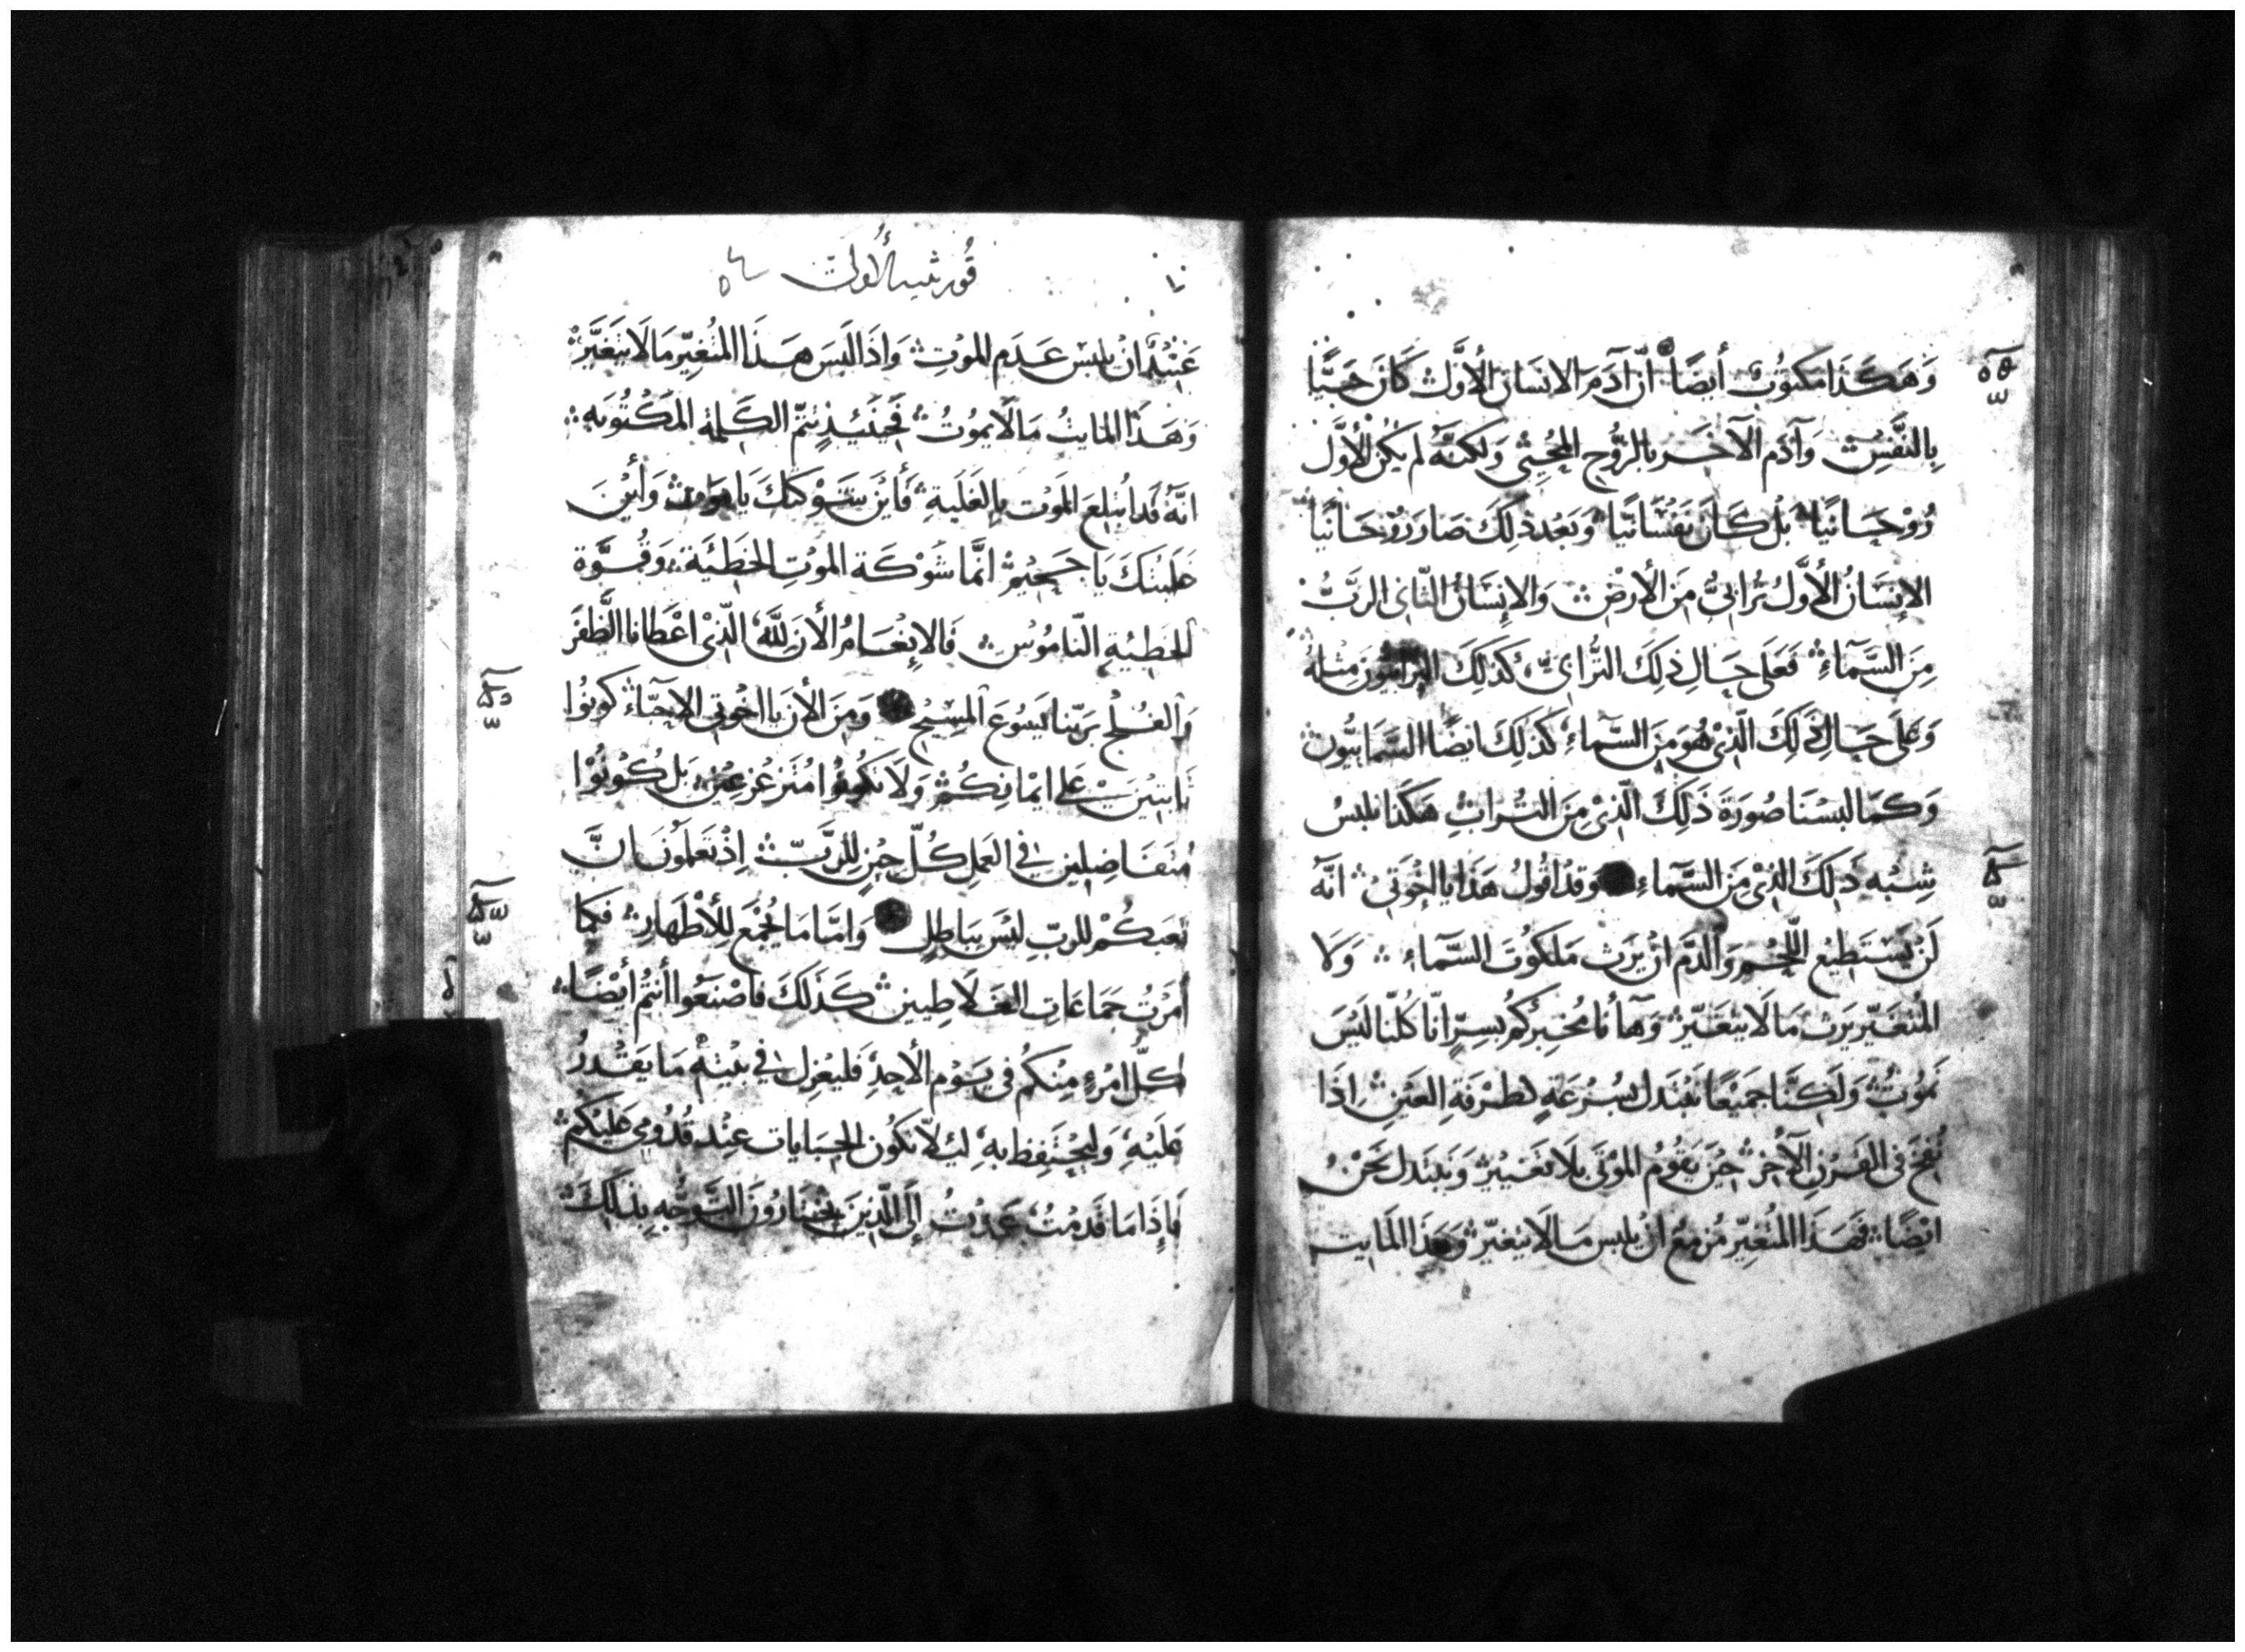 وَهَكَذَا مَكتوُبٌ أيضًا أنّ آدَمَ الانسَان الأوَّل كَانَ حَيًّا
بِالنَّفسِ وَآدَم الآخَر بالرُّوح المُحيِى وَلَكنَّهُ لم يَكُن الأوَّل
رُوْحَانيًا بَلْ كَانَ نَفْسَانيًا وَبَعْد ذلِكَ صَارَ رُوْحَانيًا
الإنسَانُ الأوَّل تُرَابىٌّ مِنَ الأرْضِ وَالإنِسَانُ الثّانى الربُّ
مِنَ السَّمَآءِ فَعَلى حَالِ ذلِكَ التُّرَابىّ كَذلِكَ الترابيُّونَ مِثلهُ
وَعَلَى حَالِ ذَلِكَ الَّذىْ هُوَ مِنَ السَّمآءِ كَذلِكَ ايضًا السَّمَايُّون
وَكمَا لبسْنَا صُورَةَ ذَلِكَ الَّذىْ مِنَ التُرابِ هَكَذا نلبسُ
شِبْه ذَلِكَ الذىْ مِنَ السَّمآءِ وَقدْ اقُولُ هَذَا يا اِخْوَتىْ انّهُ
لَنْ يَسْتَطيْع اللّحْم وَالدَّم انْ يَرِث مَلكوُتَ السَّمآء وَلا
المُتغَيّر يَرِث مَا لَا يَتغَيَّر وَهَآ أنا مُخبِركُم بسِرٍّ انّا كُلّنا ليْسَ
نَموُتُ وَلَكِنَّا جَميْعًا نَبْتَدل بسُرْعَةٍ لطرْفَةِ العَيْنِ اِذَا
نُفخَ فى القَرْنِ الآخِر حِيْن يَقوُمُ المَوْتَى بلَا تغَييْر وَنَبْتَدل نَحْنُ
ايْضًا فهَذَا المُتغَيّر مُزْمِعٌ انْ يلبس مَا لَا يَتغَيّر وَهَذَا المَايت
قورنثيه الأولى
عَتيْدٌ انْ يلبسْ عَدَم المَوْتِ وَاذَا لَبسَ هَذَا المُتغيّر مَا لَا يَتَغَيَّر
وَهَذَا المَايتُ مَا لَا يمُوُتُ فَحيْنَئِذٍ تتمّ الكَلمة المَكْتُوبَه
انّهُ قَد ابْتلعَ المَوْت بالغَلَبةِ فَأيْنَ شَوْكتكَ يَا مَوْت وَأيْنَ
غلَبتكَ يَا جَحِيْم انَّما شَوْكَة المَوْتِ الخَطيَئَة وَقُوَّة
الخَطِيْئةِ النّامُوُس فَالانِعَامُ الأنَ لِلَّهِ الّذىْ اعْطَانا الظَّفَر
وَالفُلْج برَبّنا يَسُوعَ المسِيْح وَمِنَ الأنَ يا اخْوَتى الاحبّآء كوُنُوا
ثَابتيْنَ عَلى ايمْانِكُم وَلَا تكوُنُوا مُتَزَعْزعيْن بَل كُوُنوُا
مُتفَاضِلين فى العَملِ كُلّ حيْنٍ لِلرَّبّ اِذْ تَعلمُونَ انَّ
تعَبكُمْ للربّ ليْسَ ببَاطِلٍ وَامّا مَا يُجْمَع لِلأطْهَارِ فكمَا
أمَرْتُ جَمَاعَات الغَلَاطِيين كَذَلكَ فاصْنَعُوا أنتُم أيْضًا
كلّ امْرءٍ مِنكم فى يَوْم الأحِدِ فَليَعْزل فى بيْتهِ مَا يقْدرُ
عَليْهِ وَليحْتَفِظ بهِ لئِلّا تكوُن الجبَايات عنْد قُدُومى عَليْكُم
فَاِذَا مَا قَدمْتُ عَمدْتُ إلَى الّذِينَ تَختَارُونَ التّوَجُّهِ بذلِكَ